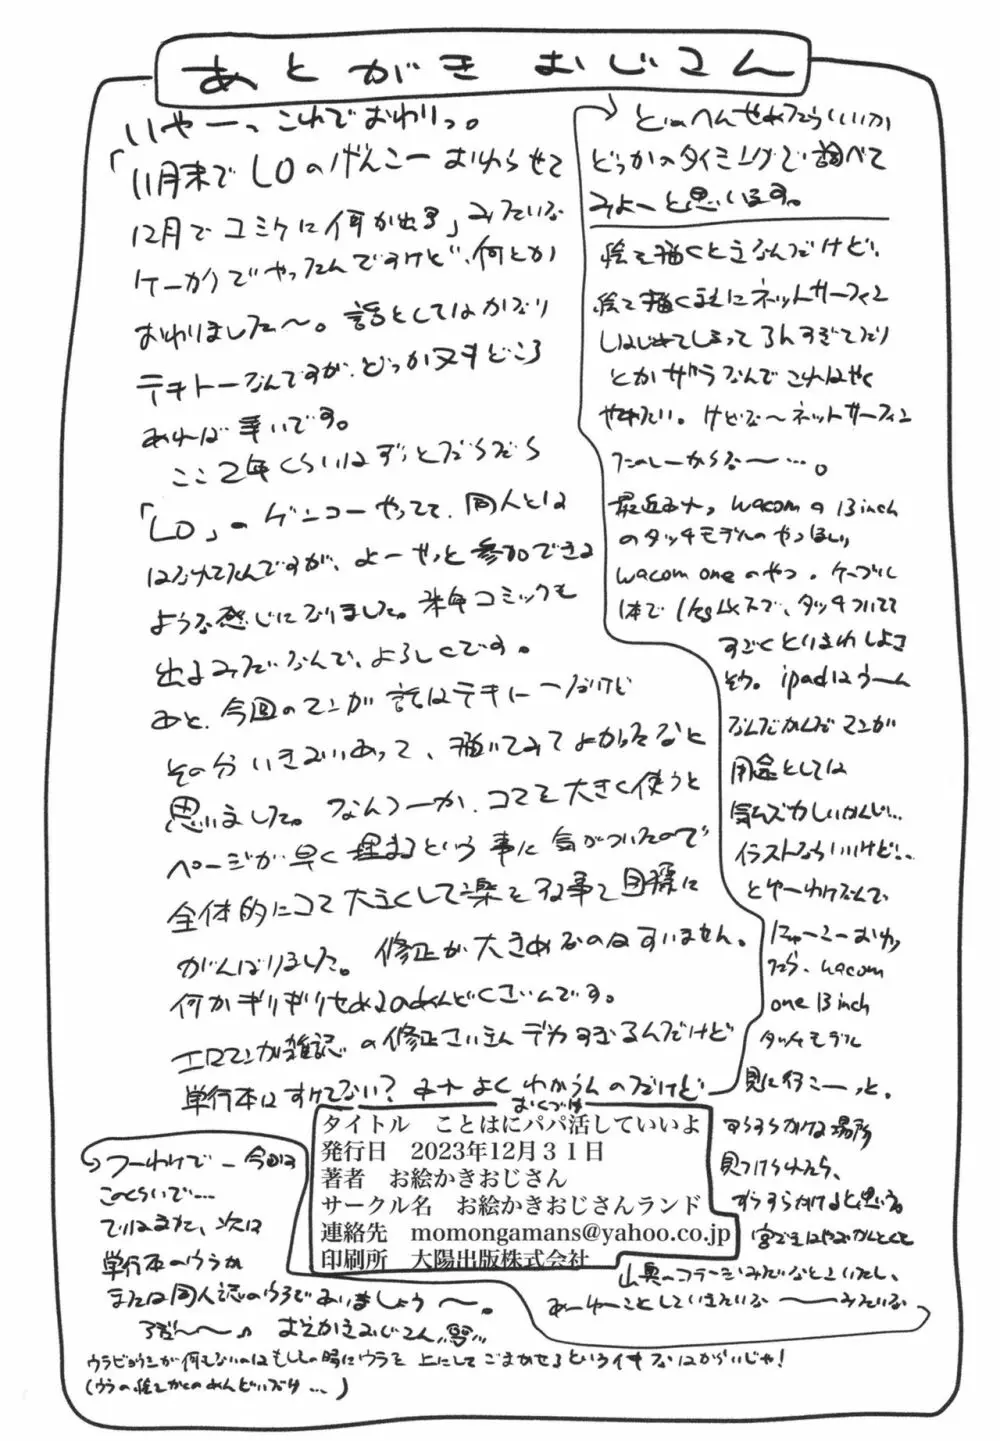 あとがき おじさん
いやーっ これでおわりっ。
「11月末でLOのげんこー おわらせて
12月でコミケに何か出る」みたいな
ケーカクでやってたんですけど、何とか
おわりました〜。話としてはかなり
テキトーなんですが、どっか又すどころ
あれば幸いです。
ここ2年くらいはずっとだらだら
「LO」のゲンコーやってて、同人とは
はなれてたんですが、よーやっと参加できる
ような感じになりました。来年コミックも
出るみたいなんで、よろしくです。
あと、今回のマンガ 話はテキトーだけど
その分いきおいあって、描いてみてよかったなと
思いました。なんつーか、コマを大きく使うと
ページが早く埋まるという事に気がついたので
全体的にコマ大きくして楽をする事を目標に
がんばりました。修正が大きめなのはすいません。
何かギリギリせめるのめんどくさいんです。
エロマンガ雑誌の修正さいきんデカすぎるんだけど
単行本はすけてない? みナよくわからんのだけど
どのへんせめたらいいか
どっかのタイミングで調べて
みよーと思います。
絵を描くときなんだけど、
絵を描くまえにネットサーフィン
しはじめてしまって
とかザラなんでこれはやく
やめたい。けどな〜ネットサーフィン
たのしーからな〜…。
最近さナっ wacomの13inch
のタッチモデルのやつほしい
wacom oneのやつ。ケーブル
1本で1kg以下で、タッチついてて
すごくとりまわしよさ
そう。ipadはうーん
なんだかんだマンガ
用途としては
気ムズカしいかんじ…
イラストならいいけど…
とゆーわけなんで、
にゅーこーおわっ
たら、wacom
one 13inch
タッチモデル
見に行こーっと。
すらすらかける場所
見つけられたら、
すらすらかけると思いる。
宮ざきはやおかんとくも
山奥のコテージみたいなとこいたし、
あーゆーことしていきたいな〜みたいな
つーわけで−今回は
このくらいで…
ではまた、次は
単行本のウラか
または同人誌のウラであいましょう〜。
おえかきおじさん
ウラビョウシが何もないのはもしもの時にウラを上にしてごまかせるというイキなはからいじゃ!
(ウラの絵かくのめんどいだけ…)
おくづけ
タイトル ことはにパパ活していいよ
発行日 2023年12月31日
著者 お絵かきおじさん
サークル名 お絵かきおじさんランド
連絡先 momongamans@yahoo.co.jp
印刷所 大陽出版株式会社